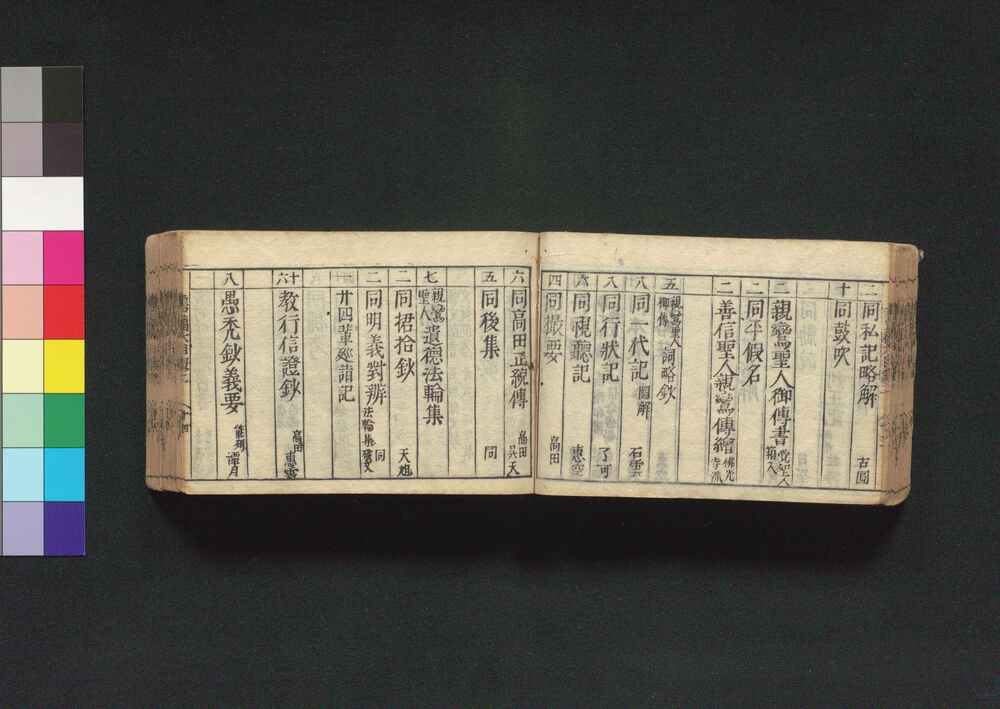 二 同私記略解 古圓
十 同鼓吹
二 親鸞聖人御傳書 覚聖人 箱入
二 同平假名
二 善信聖人親鸞傳繪 佛光寺派
五 親鸞聖人御傳詞略鈔
八 同一代記圖解 石雲
八 同行状記 了可
六 同視聽記 恵空
四 同撮要 高田
六 同高田正統傳 高田 良天
五 同後集 同
七 親鸞聖人遺德法輪集
二 同捃拾鈔 天旭
二 同明義對辨 法輪集 同
廿四輩巡詣記
十六 教行信證鈔 高田 恵雲
八 愚禿鈔義要